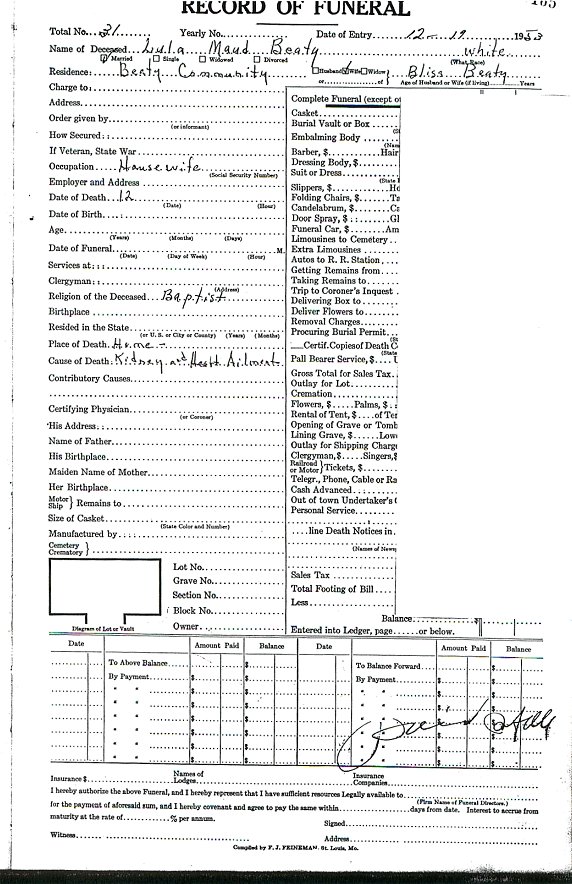 RECORD OF FUNERAL
Total No. 31 Yearly No. Date of Entry 12-19 1953
Name of Deceased Lula Maud Beaty white
Married Single Widowed Divorced (What Race)
Residence: Beaty Community Husband Wife Widow or of Bliss Beaty Age of Husband or Wife (if living) Years
Charge to:
Address
Order given by
(or informant)
How Secured: :
If Veteran, State War
Occupation Housewife
(Social Security Number)
Employer and Address
Date of Death 12
(Date) (Hour)
Date of Birth
Age
(Years) (Months) (Days)
Date of Funeral M.
(Date) (Day of Week) (Hour)
Services at: : :
(Address)
Clergyman: :
Religion of the Deceased Baptist
Birthplace
Resided in the State
(or U. S. or City or County) (Years) (Months)
Place of Death Home
Cause of Death: Kidney and Heart Ailment
Contributory Causes
Certifying Physician
(or Coroner)
His Address
Name of Father
His Birthplace
Maiden Name of Mother
Her Birthplace
Motor Ship } Remains to
Size of Casket
(State Color and Number)
Manufactured by
Cemetery Crematory }
Lot No.
Grave No.
Section No.
Block No.
Owner
Diagram of Lot or Vault
Complete Funeral (except o
Casket
Burial Vault or Box
(S
Embalming Body
(Nam
Barber, $ Hair
Dressing Body, $
Suit or Dress
(State
Slippers, $ Ho
Folding Chairs, $ Ta
Candelabrum, $ Ca
Door Spray, $ : : Gl
Funeral Car, $ Am
Limousines to Cemetery
Extra Limousines
Autos to R. R. Station
Getting Remains from
Taking Remains to
Trip to Coroner's Inquest
Delivering Box to
Deliver Flowers to
Removal Charges
Procuring Burial Permit
(St
Certif. Copies of Death C
(State
Pall Bearer Service, $ L
Gross Total for Sales Tax
Outlay for Lot
Cremation
Flowers, $ Palms, $
Rental of Tent, $ of Ter
Opening of Grave or Tomb
Lining Grave, $ Low
Outlay for Shipping Charg
Clergyman, $ Singers, $
Railroad or Motor } Tickets, $
Telegr., Phone, Cable or Ra
Cash Advanced
Out of town Undertaker's
Personal Service
line Death Notices in
(Names of News
Sales Tax
Total Footing of Bill
Less
Balance $
Entered into Ledger, page or below.
Date Amount Paid Balance Date Amount Paid Balance
To Above Balance $ To Balance Forward $
By Payment $ By Payment $
Insurance $ Names of Lodges Insurance Companies
I hereby authorize the above Funeral, and I hereby represent that I have sufficient resources Legally available to
(Firm Name of Funeral Directors.)
for the payment of aforesaid sum, and I hereby covenant and agree to pay the same within days from date. Interest to accrue from
maturity at the rate of % per annum. Signed
Witness Address
Compiled by F. J. FEINEMAN, St. Louis, Mo.